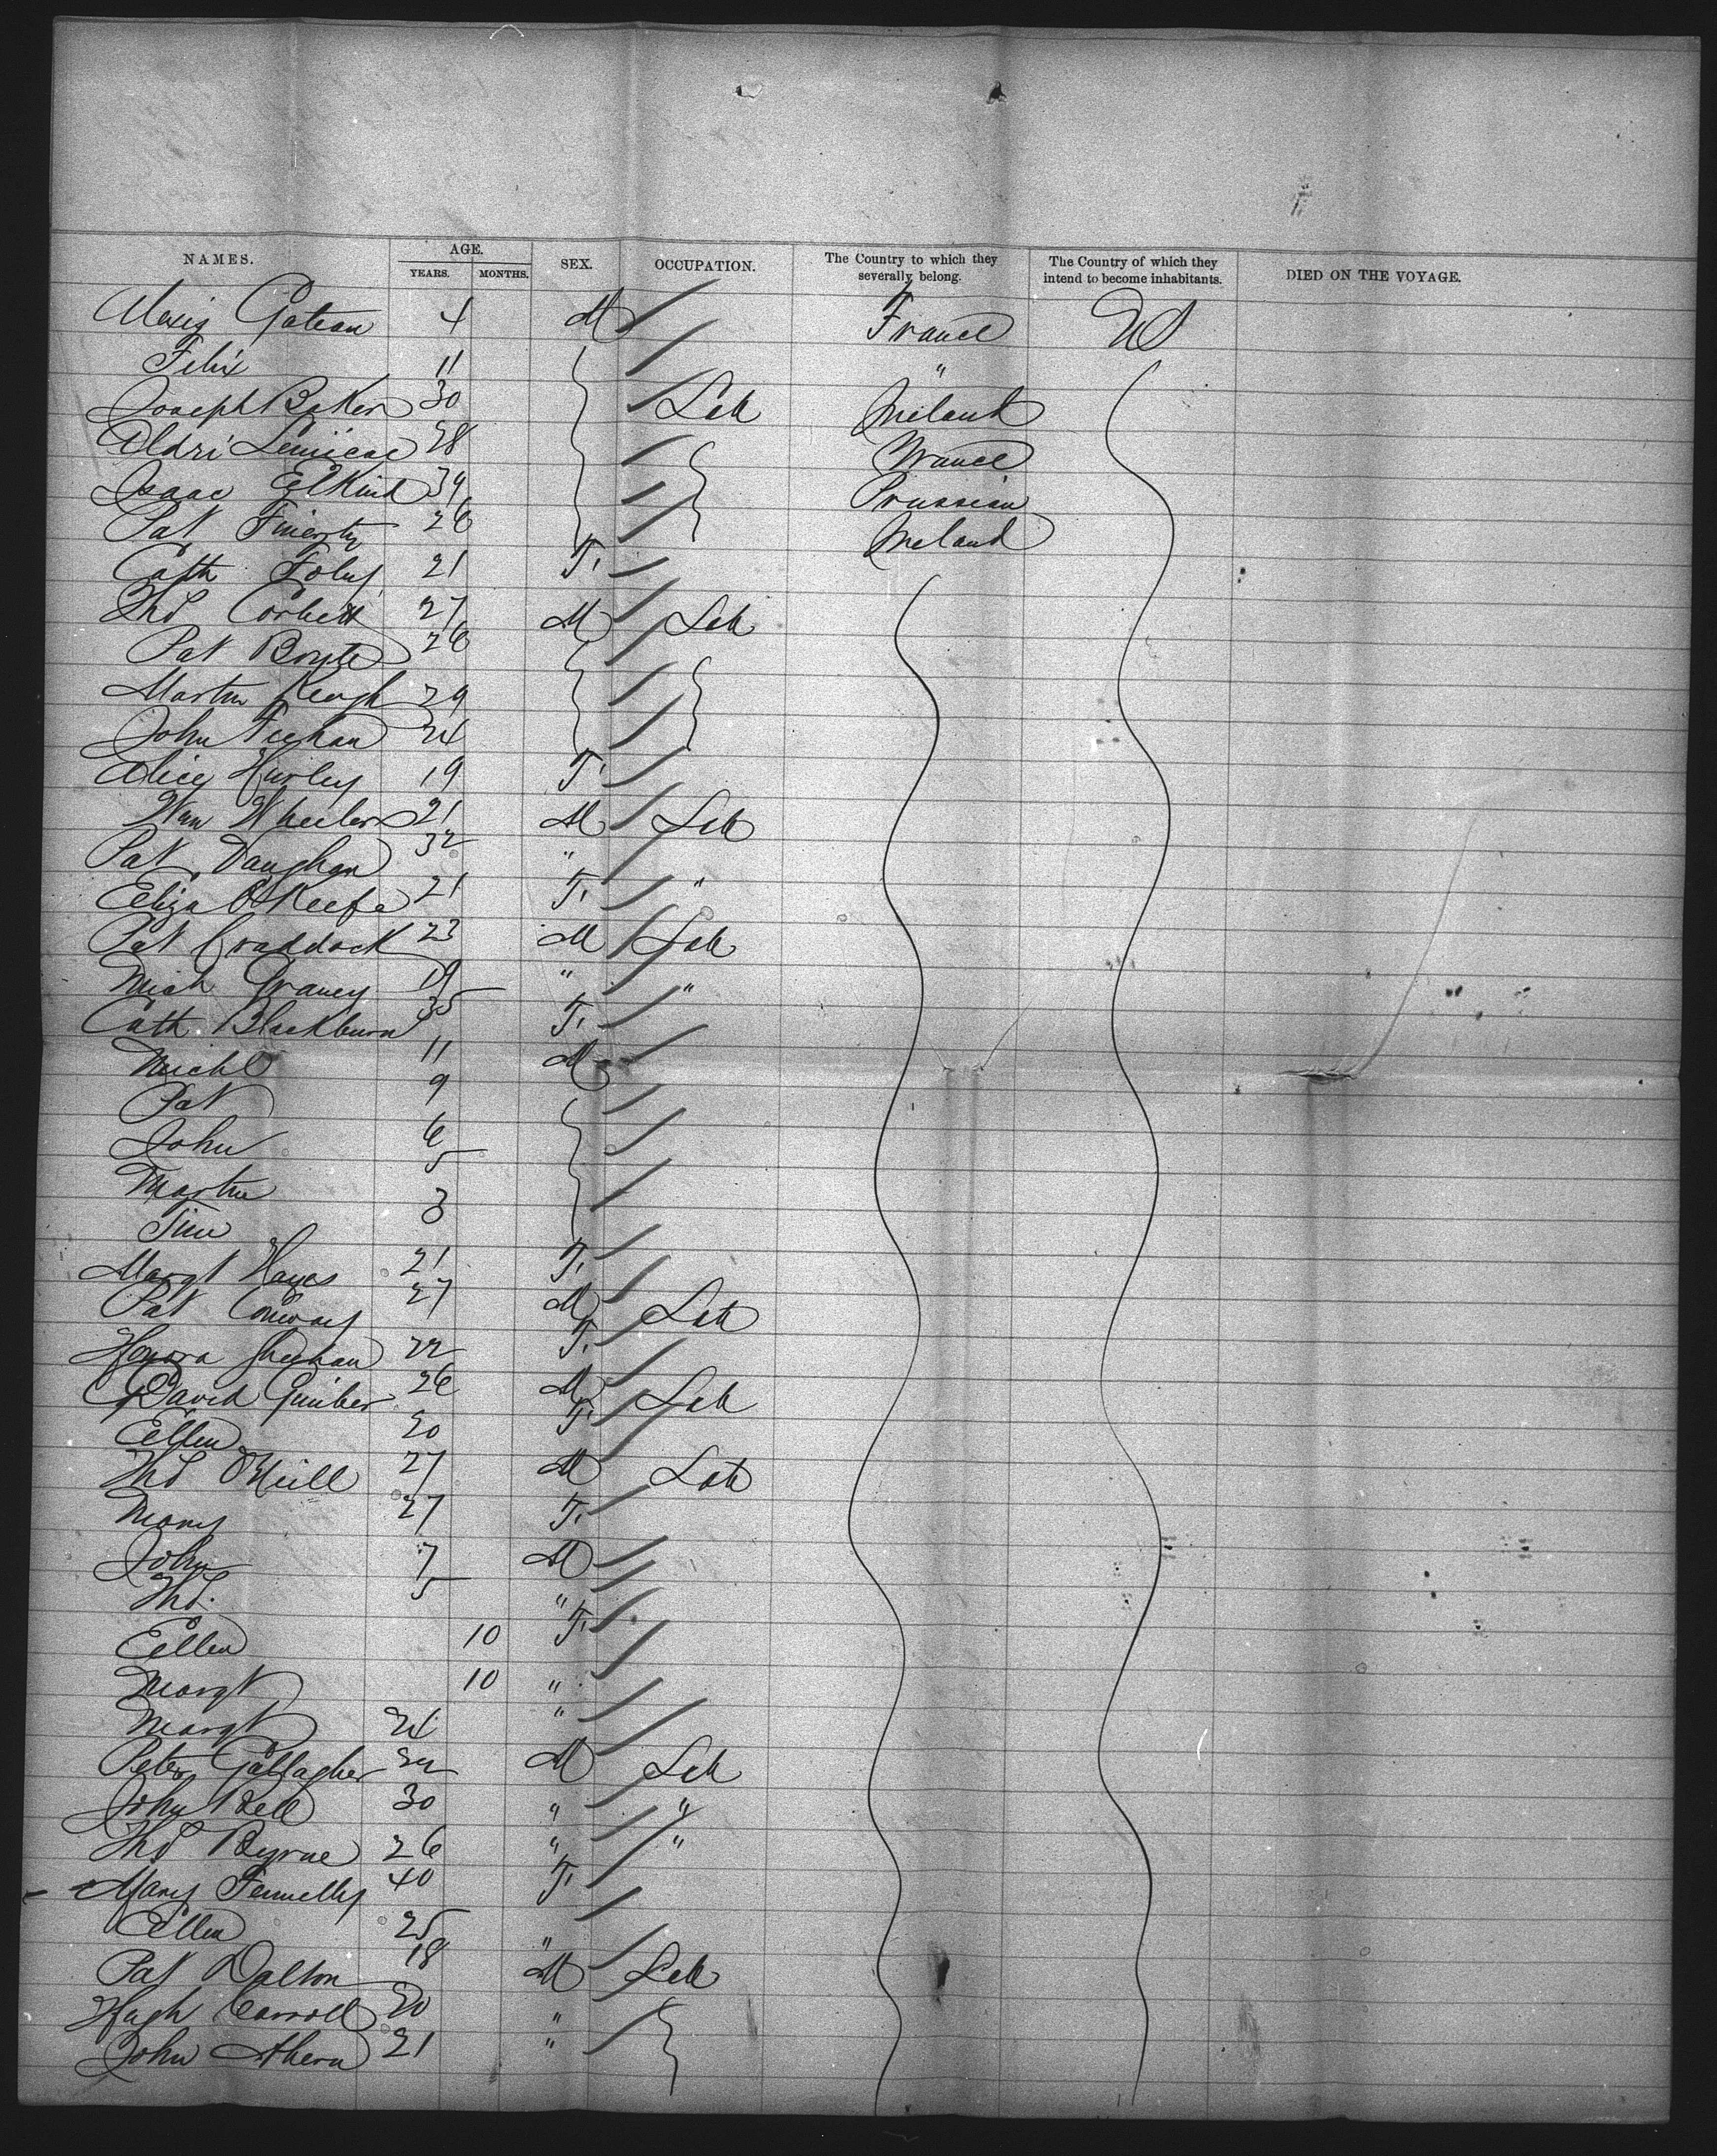 NAMES. AGE. YEARS. MONTHS. SEX. OCCUPATION. The Country to which they severally belong. The Country of which they intend to become inhabitants. DIED ON THE VOYAGE.
Gateau 4 M France US
Felix 11 "
Joseph Baker 30 Lab Ireland
28 France
Isaac Elkind 34 Prussian
Pat Finerty 26 Ireland
Cath Foley 21 F.
Thos Corbett 27 M Lab
Pat 26
Martin Keogh 29
John Feehan 24
Alice Hurley 19 F.
Wm Wheeler 21 M Lab
Pat Vaughan 32 "
Eliza O'Keefe 21 F. "
Pat Craddock 23 M Lab
Mich Graney 19 " "
Cath Blackburn 35 F.
Michl 11 M
Pat 9
John 6
Martin 5
Tim 3
Margt Hayes 21 F.
Pat Conway 27 M Lab
Honora Sheehan 22 F.
David 26 M Lab
Ellen 20 F.
Thos O'Neill 27 M Lab
Mary 27 F.
John 7 M
Thos. 5 "
Ellen 10 F.
Margt 10 "
Margt 24 "
Peter Gallagher 32 M Lab
John Bell 30 " "
Thos Byrne 26 " "
Mary Fennelly 40 F.
Ellen 25 "
Pat Dalton 18 M Lab
Hugh Carroll 20 "
John Ahern 21 "